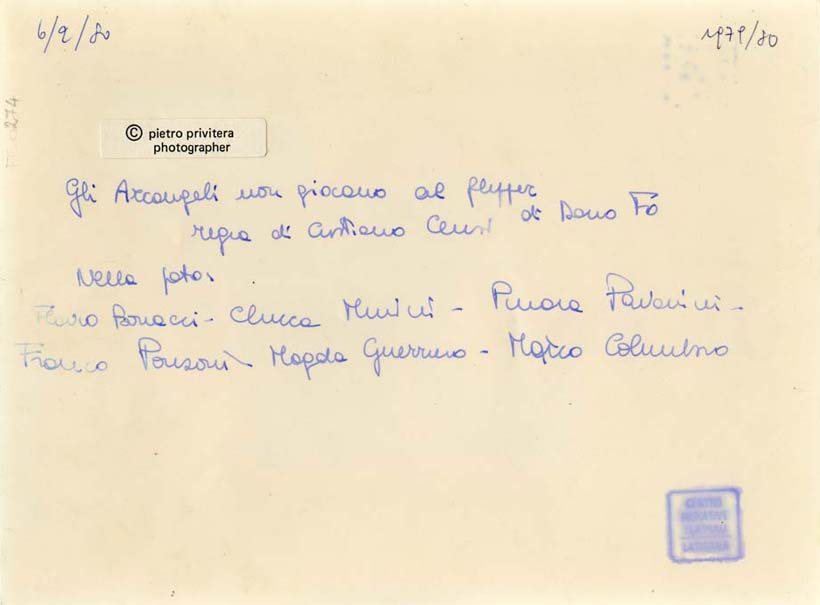 6/9/80
1979/80
274
© pietro privitera
photographer
Gli Arcangeli non giocano al flipper
di Dario Fò
regia di Cristiano Censi
Nella foto:
Flavio Bonacci - Chicca Minini - Pinara Pavanini -
Franco Ponzoni - Magda Guerriero - Marco Columbro
CENTRO
INIZIATIVE
TEATRALI